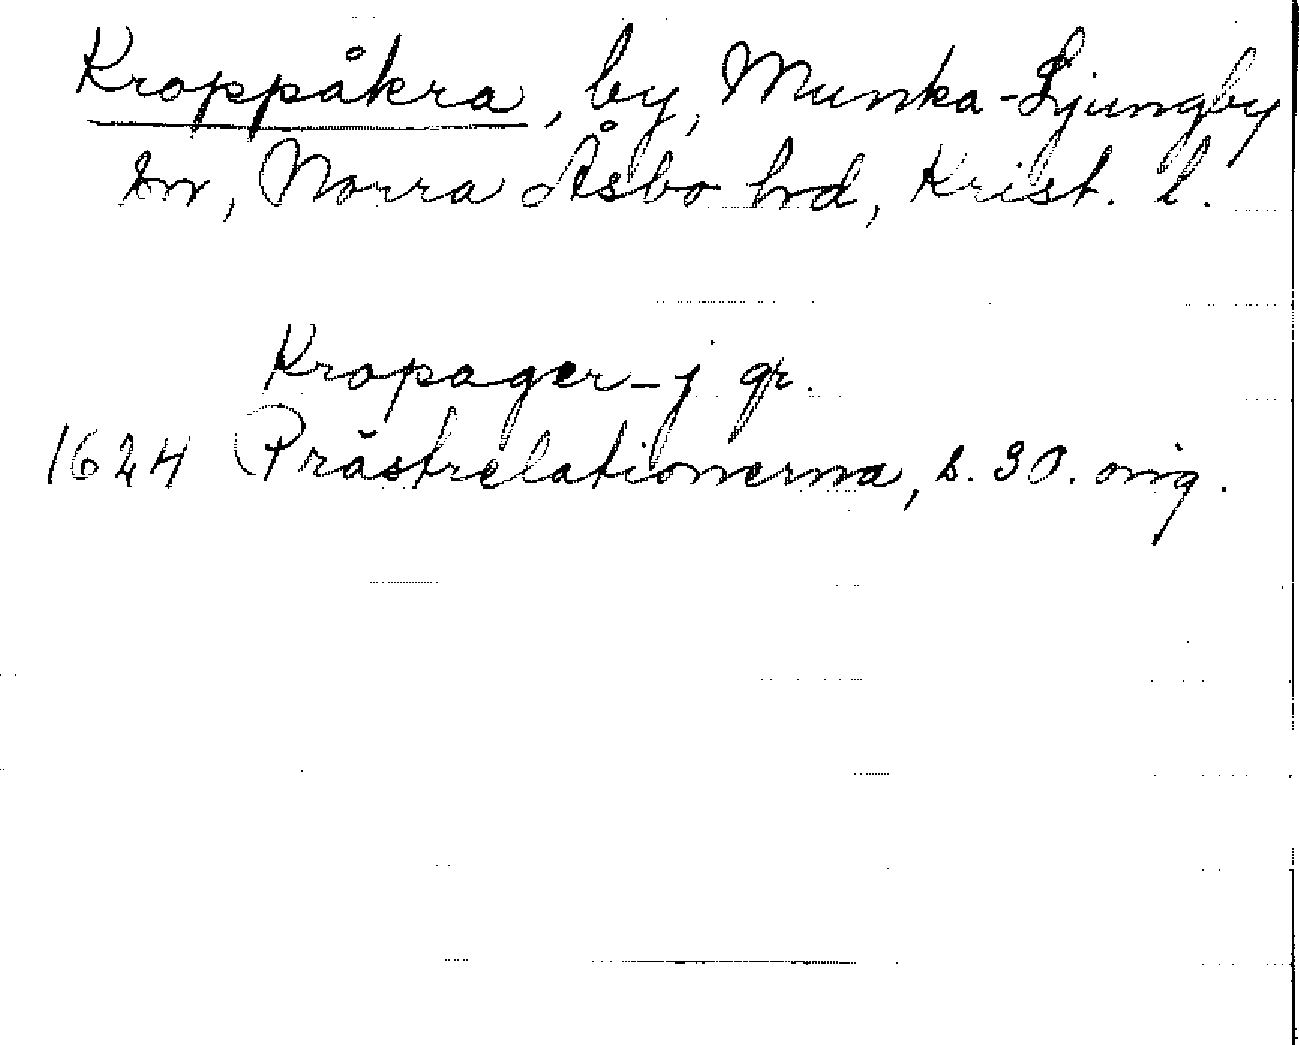 Kroppåkra, by, Munka-Ljungby
sn, Norra Åsbo hrd, Krist. l.
Kropager - j gr.
1624 Prästrelationerna, s. 30. orig.